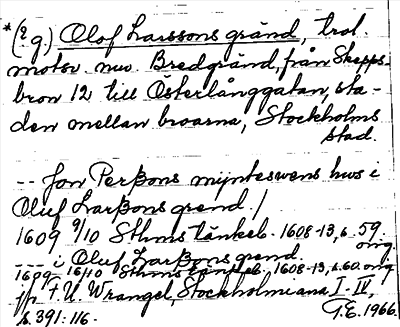 *(? g) Olof Larssons gränd, trol.
motsv. nuv. Bredgränd, från Skepps-
bron 12 till Österlånggatan, sta-
den mellan broarna, Stockholms
stad.
-- Jon Perßons mynteswens hws i
Oluf Larßons grend./
1609 9/10 Sthms tänkeb. 1608-13, s. 59.
orig.
--- i Oluf Larßons grend.
1609 16/10 Sthms tänkeb. 1608-13, s. 60. orig
jfr F. U. Wrangel, Stockholmiana I-IV,
s. 391: 116.
T.E. 1966.